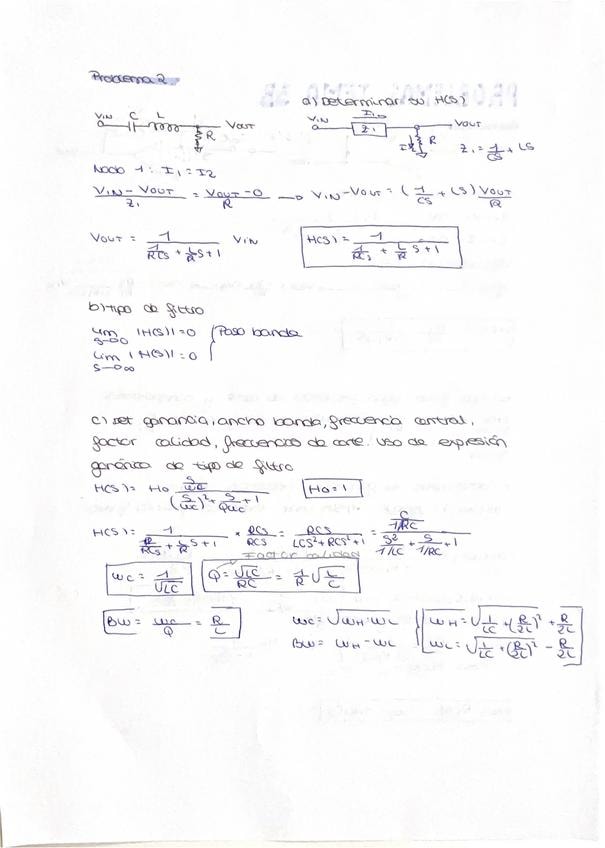 Problema 2
a) Determinar su H(s)
VIN C L VOUT R
VIN I1 Z1 VOUT I2 R Z1 = 1/CS + LS
Nodo 1: I1 = I2
(VIN - VOUT)/Z1 = (VOUT - 0)/R → VIN - VOUT = (1/CS + LS) VOUT/R
VOUT = 1/(1/RCS + L/R S + 1) VIN
H(S) = 1/(1/RCS + L/R S + 1)
b) tipo de filtro
lim S→0 |H(S)| = 0
lim S→∞ |H(S)| = 0
Paso banda
c) set ganancia, ancho banda, frecuencia central,
factor calidad, frecuencias de corte. Uso de expresión
genérica de tipo de filtro
H(S) = Ho (S/QωC)/((S/ωC)² + S/QωC + 1) Ho = 1
H(S) = 1/(1/RCS + L/R S + 1) * RCS/RCS = RCS/(LCS² + RCS + 1) = (S/(1/RC))/(S²/(1/LC) + S/(1/RC) + 1)
Factor calidad
ωC = 1/√LC
Q = √LC/RC = 1/R √(L/C)
BW = ωC/Q = R/L
ωC = √(ωH·ωL)
BW = ωH - ωL
ωH = √(1/LC + (R/2L)²) + R/2L
ωL = √(1/LC + (R/2L)²) - R/2L